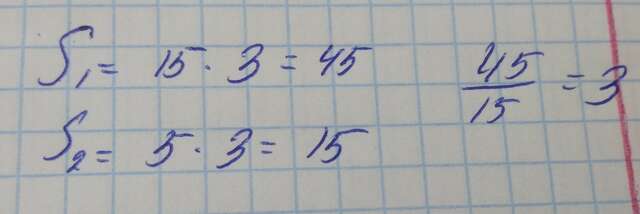 S₁ = 15 · 3 = 45
S₂ = 5 · 3 = 15
45/15 = 3